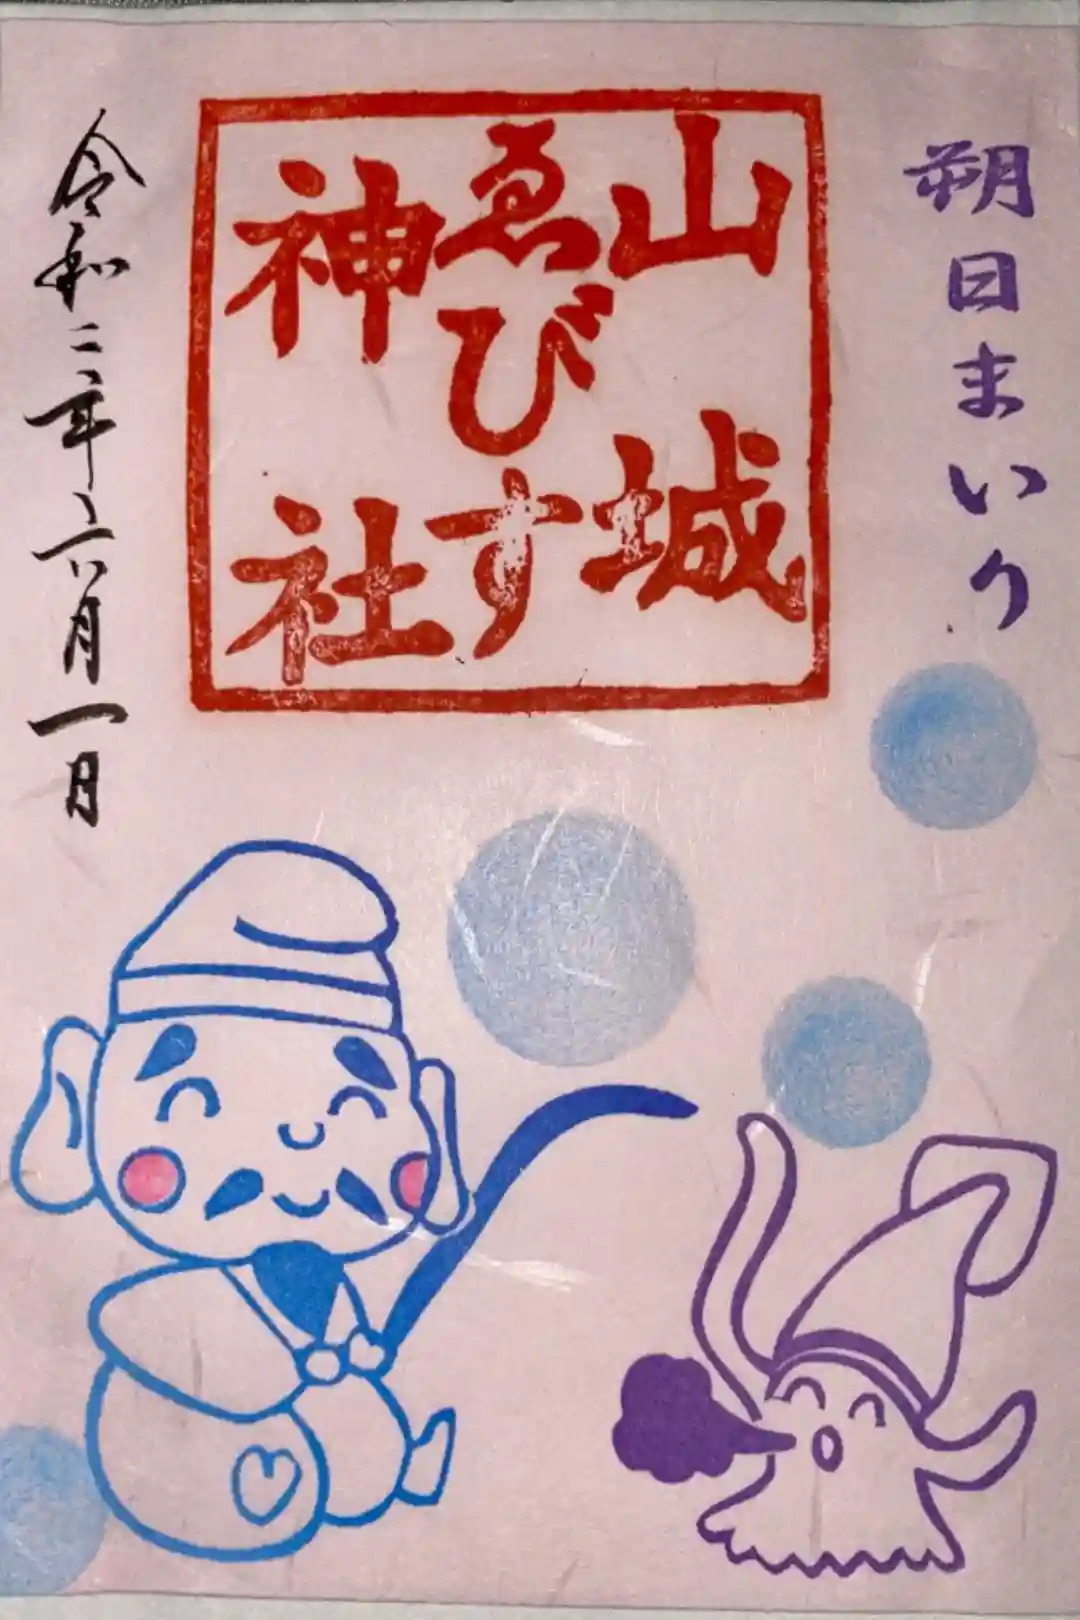 朔日まいり
山城
ゑびす
神社
令和二年六月一日